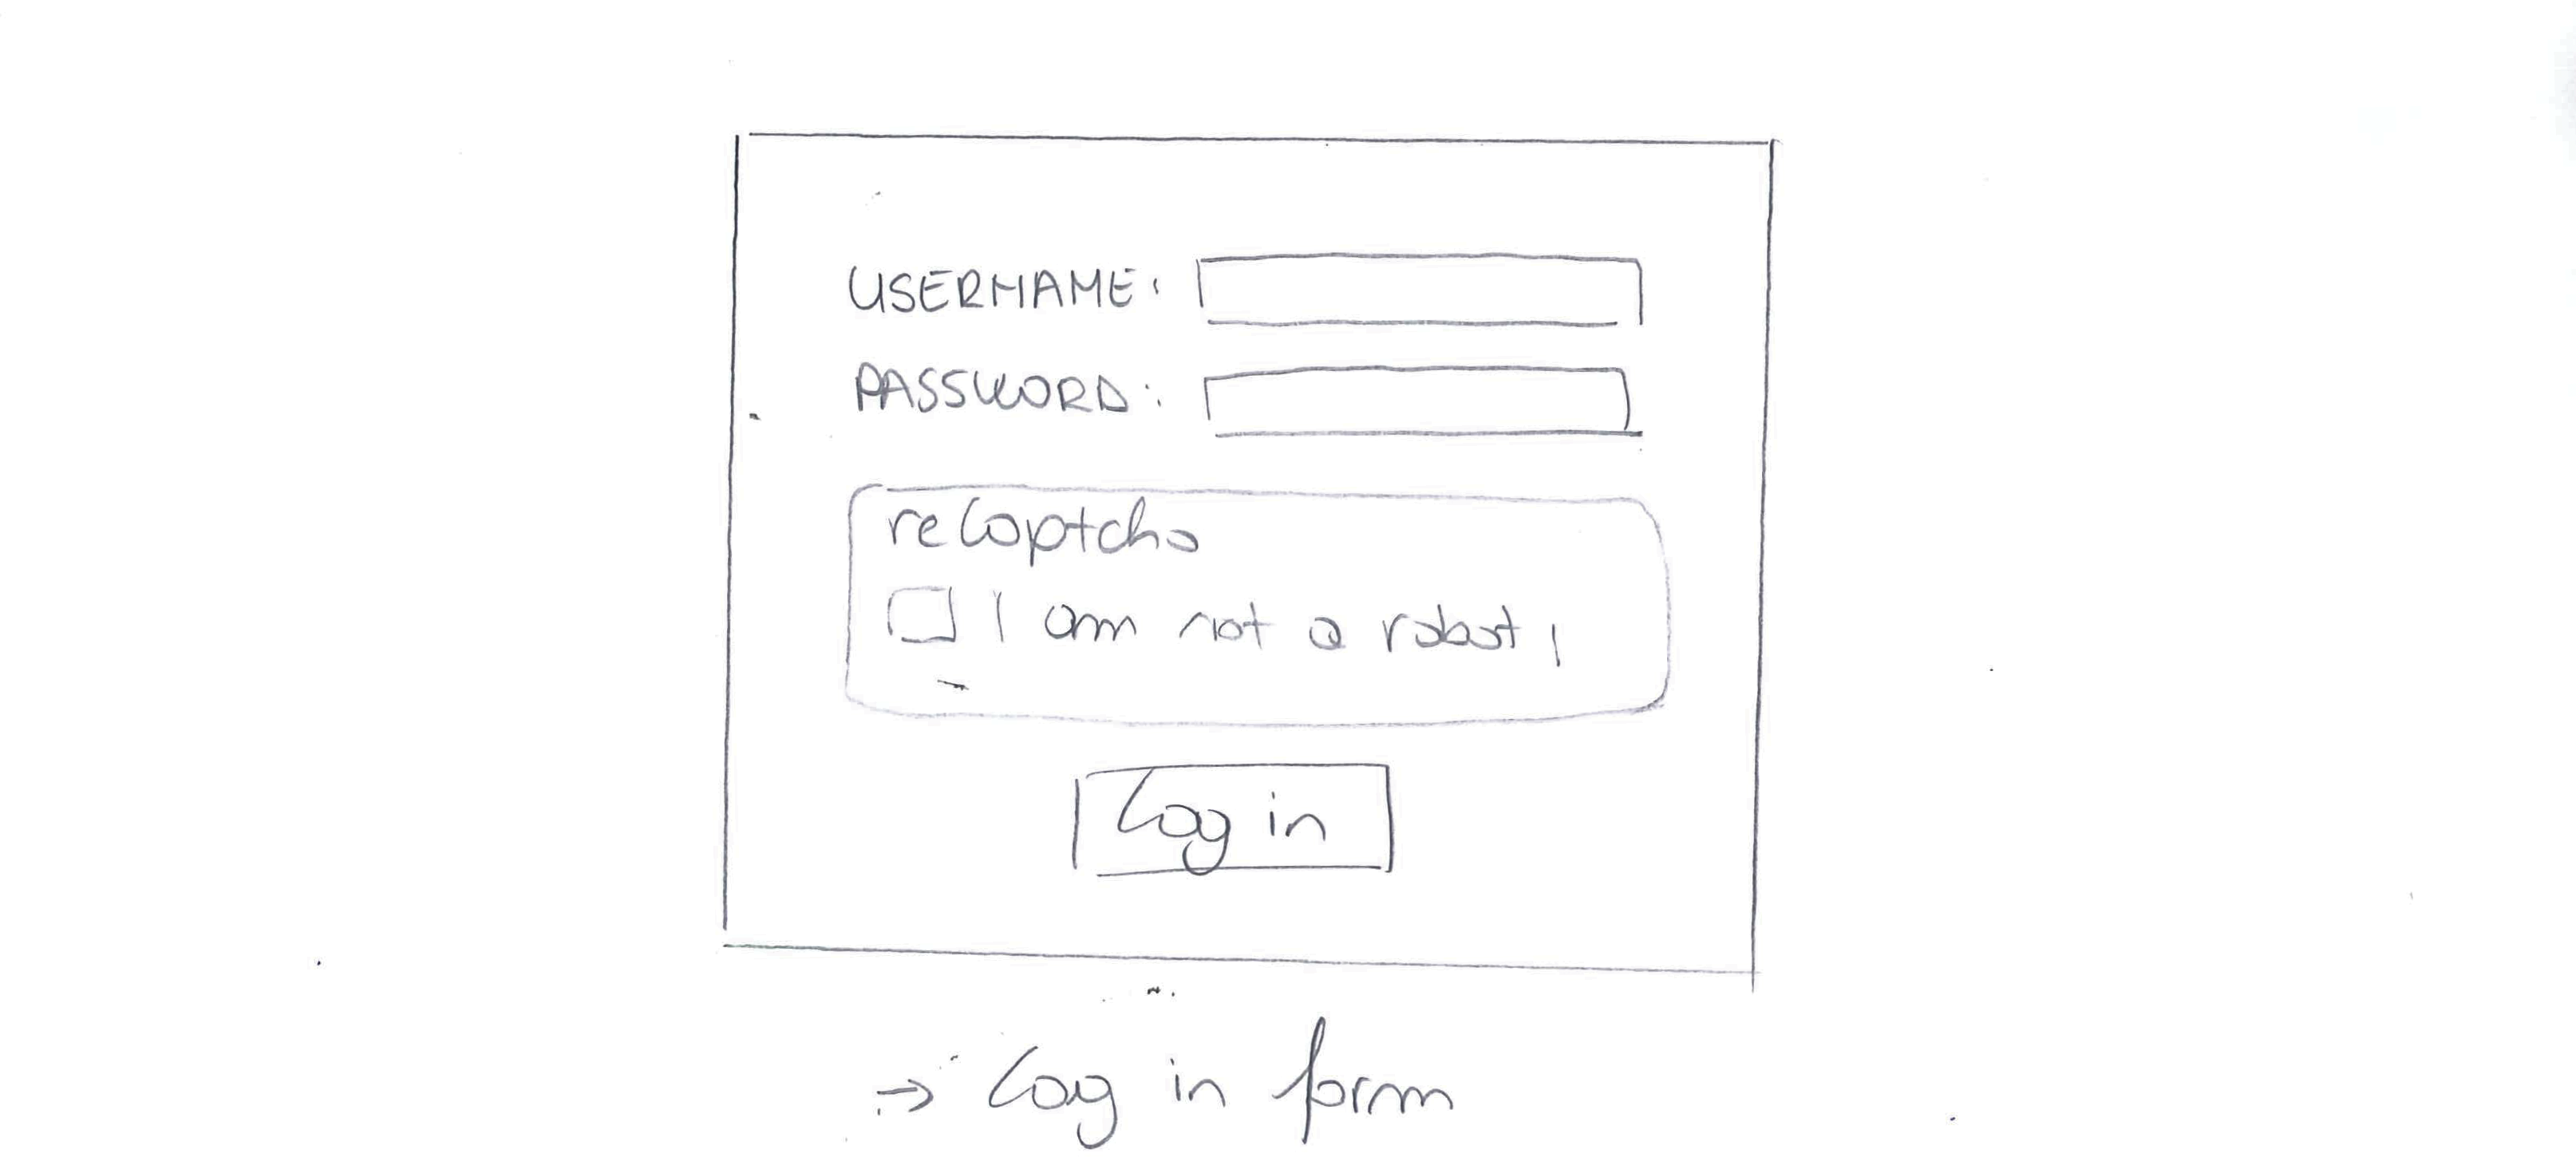 USERNAME:
PASSWORD:
reCaptcha
I am not a robot,
Log in
→ Log in form